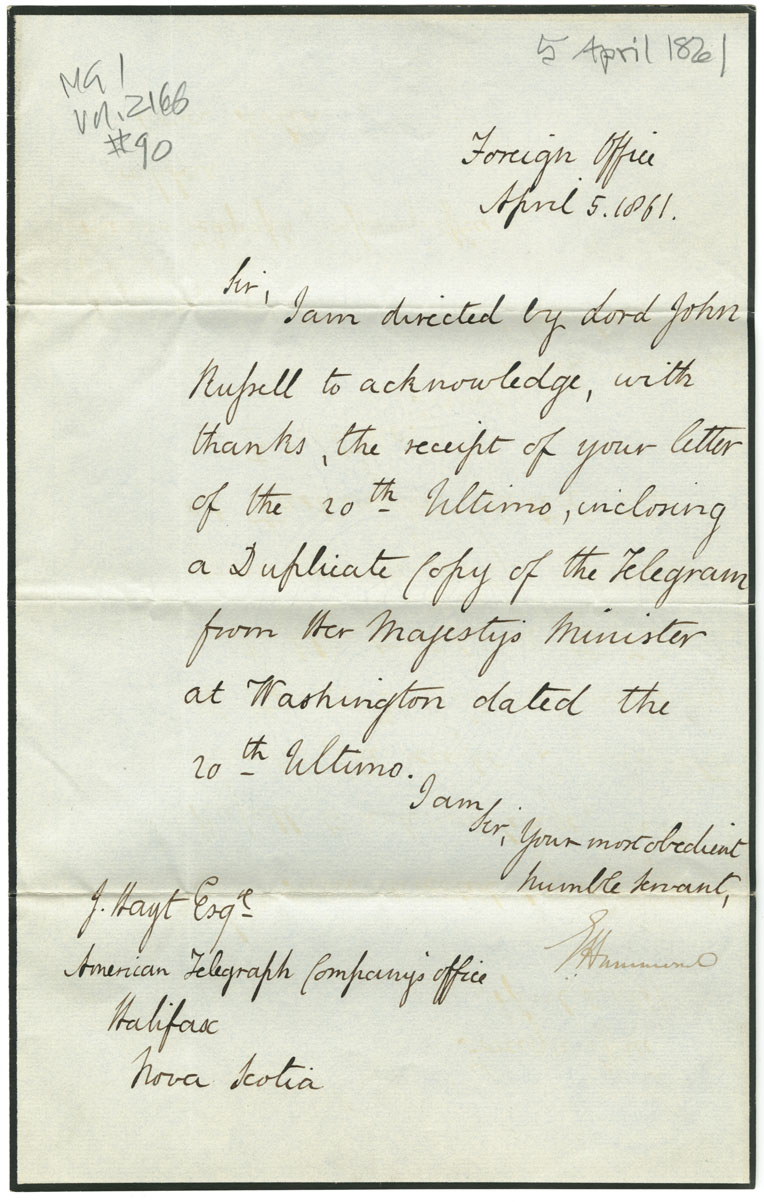 MG 1
Vol. 2166
#90
5 April 1861
Foreign Office
April 5. 1861.
Sir,
I am directed by Lord John
Russell to acknowledge, with
thanks, the receipt of your letter
of the 20th Ultimo, inclosing
a Duplicate Copy of the Telegram
from Her Majesty's Minister
at Washington dated the
20th Ultimo.
I am
Sir, Your most obedient
humble servant,
E Hammond
J. Hayt Esqre
American Telegraph Company's office
Halifax
Nova Scotia